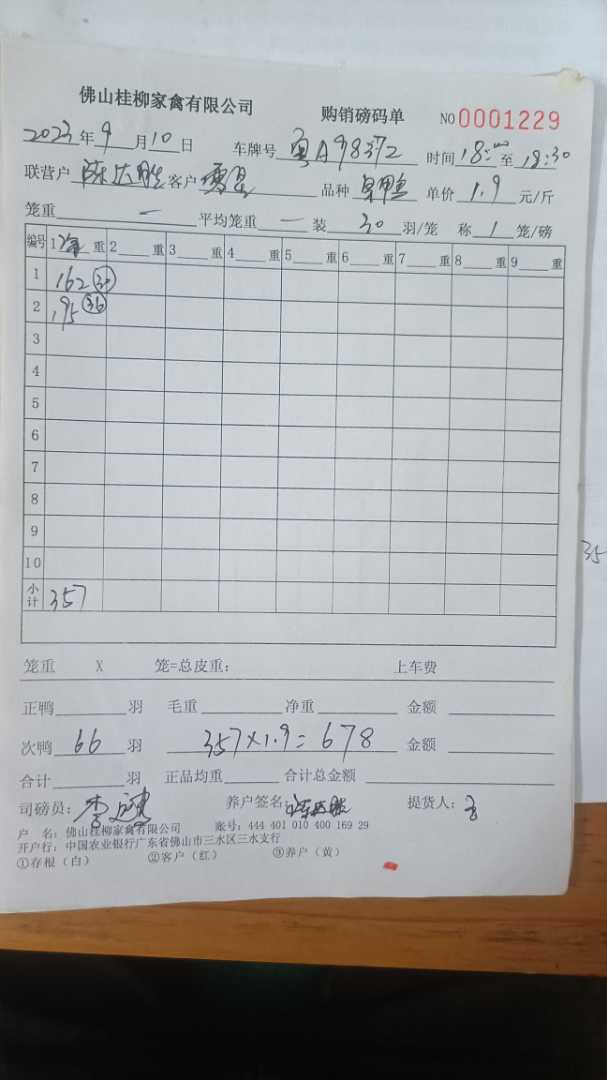 佛山桂柳家禽有限公司 购销磅码单 NO 0001229
2023年9月10日 车牌号 粤A98372 时间18:00至18:30
联营户 陈达胜 客户 品种 单价 1.9 元/斤
笼重 — 平均笼重 — 装 30 羽/笼 称 1 笼/磅
编号 1 净 重 2 重 3 重 4 重 5 重 6 重 7 重 8 重 9 重
1 162 30
2 195 36
3
4
5
6
7
8
9
10
小计 357
笼重 X 笼=总皮重: 上车费
正鸭 羽 毛重 净重 金额
次鸭 66 羽 357×1.9=678 金额
合计 羽 正品均重 合计总金额
司磅员: 养户签名: 陈达胜 提货人:
户 名: 佛山桂柳家禽有限公司 账号: 444 401 010 400 169 29
开户行: 中国农业银行广东省佛山市三水区三水支行
①存根（白） ②客户（红） ③养户（黄）
35